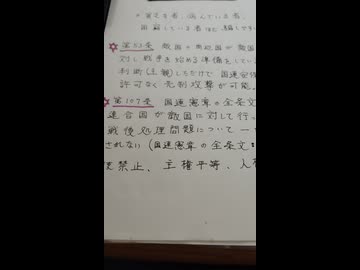 ※ 貧乏な者、病んでいる者、
困窮している者はお騙しです
第53条 敵国の周辺国が敵国
対し戦争を始める準備をしてい
判断(主観)しただけで 国連安保
許可なく先制攻撃が可能。
第107条 国連憲章の全条文
連合国が敵国に対して行っ
戦後処理問題について一
されない(国連憲章の全条文:
使禁止、主権平等、人